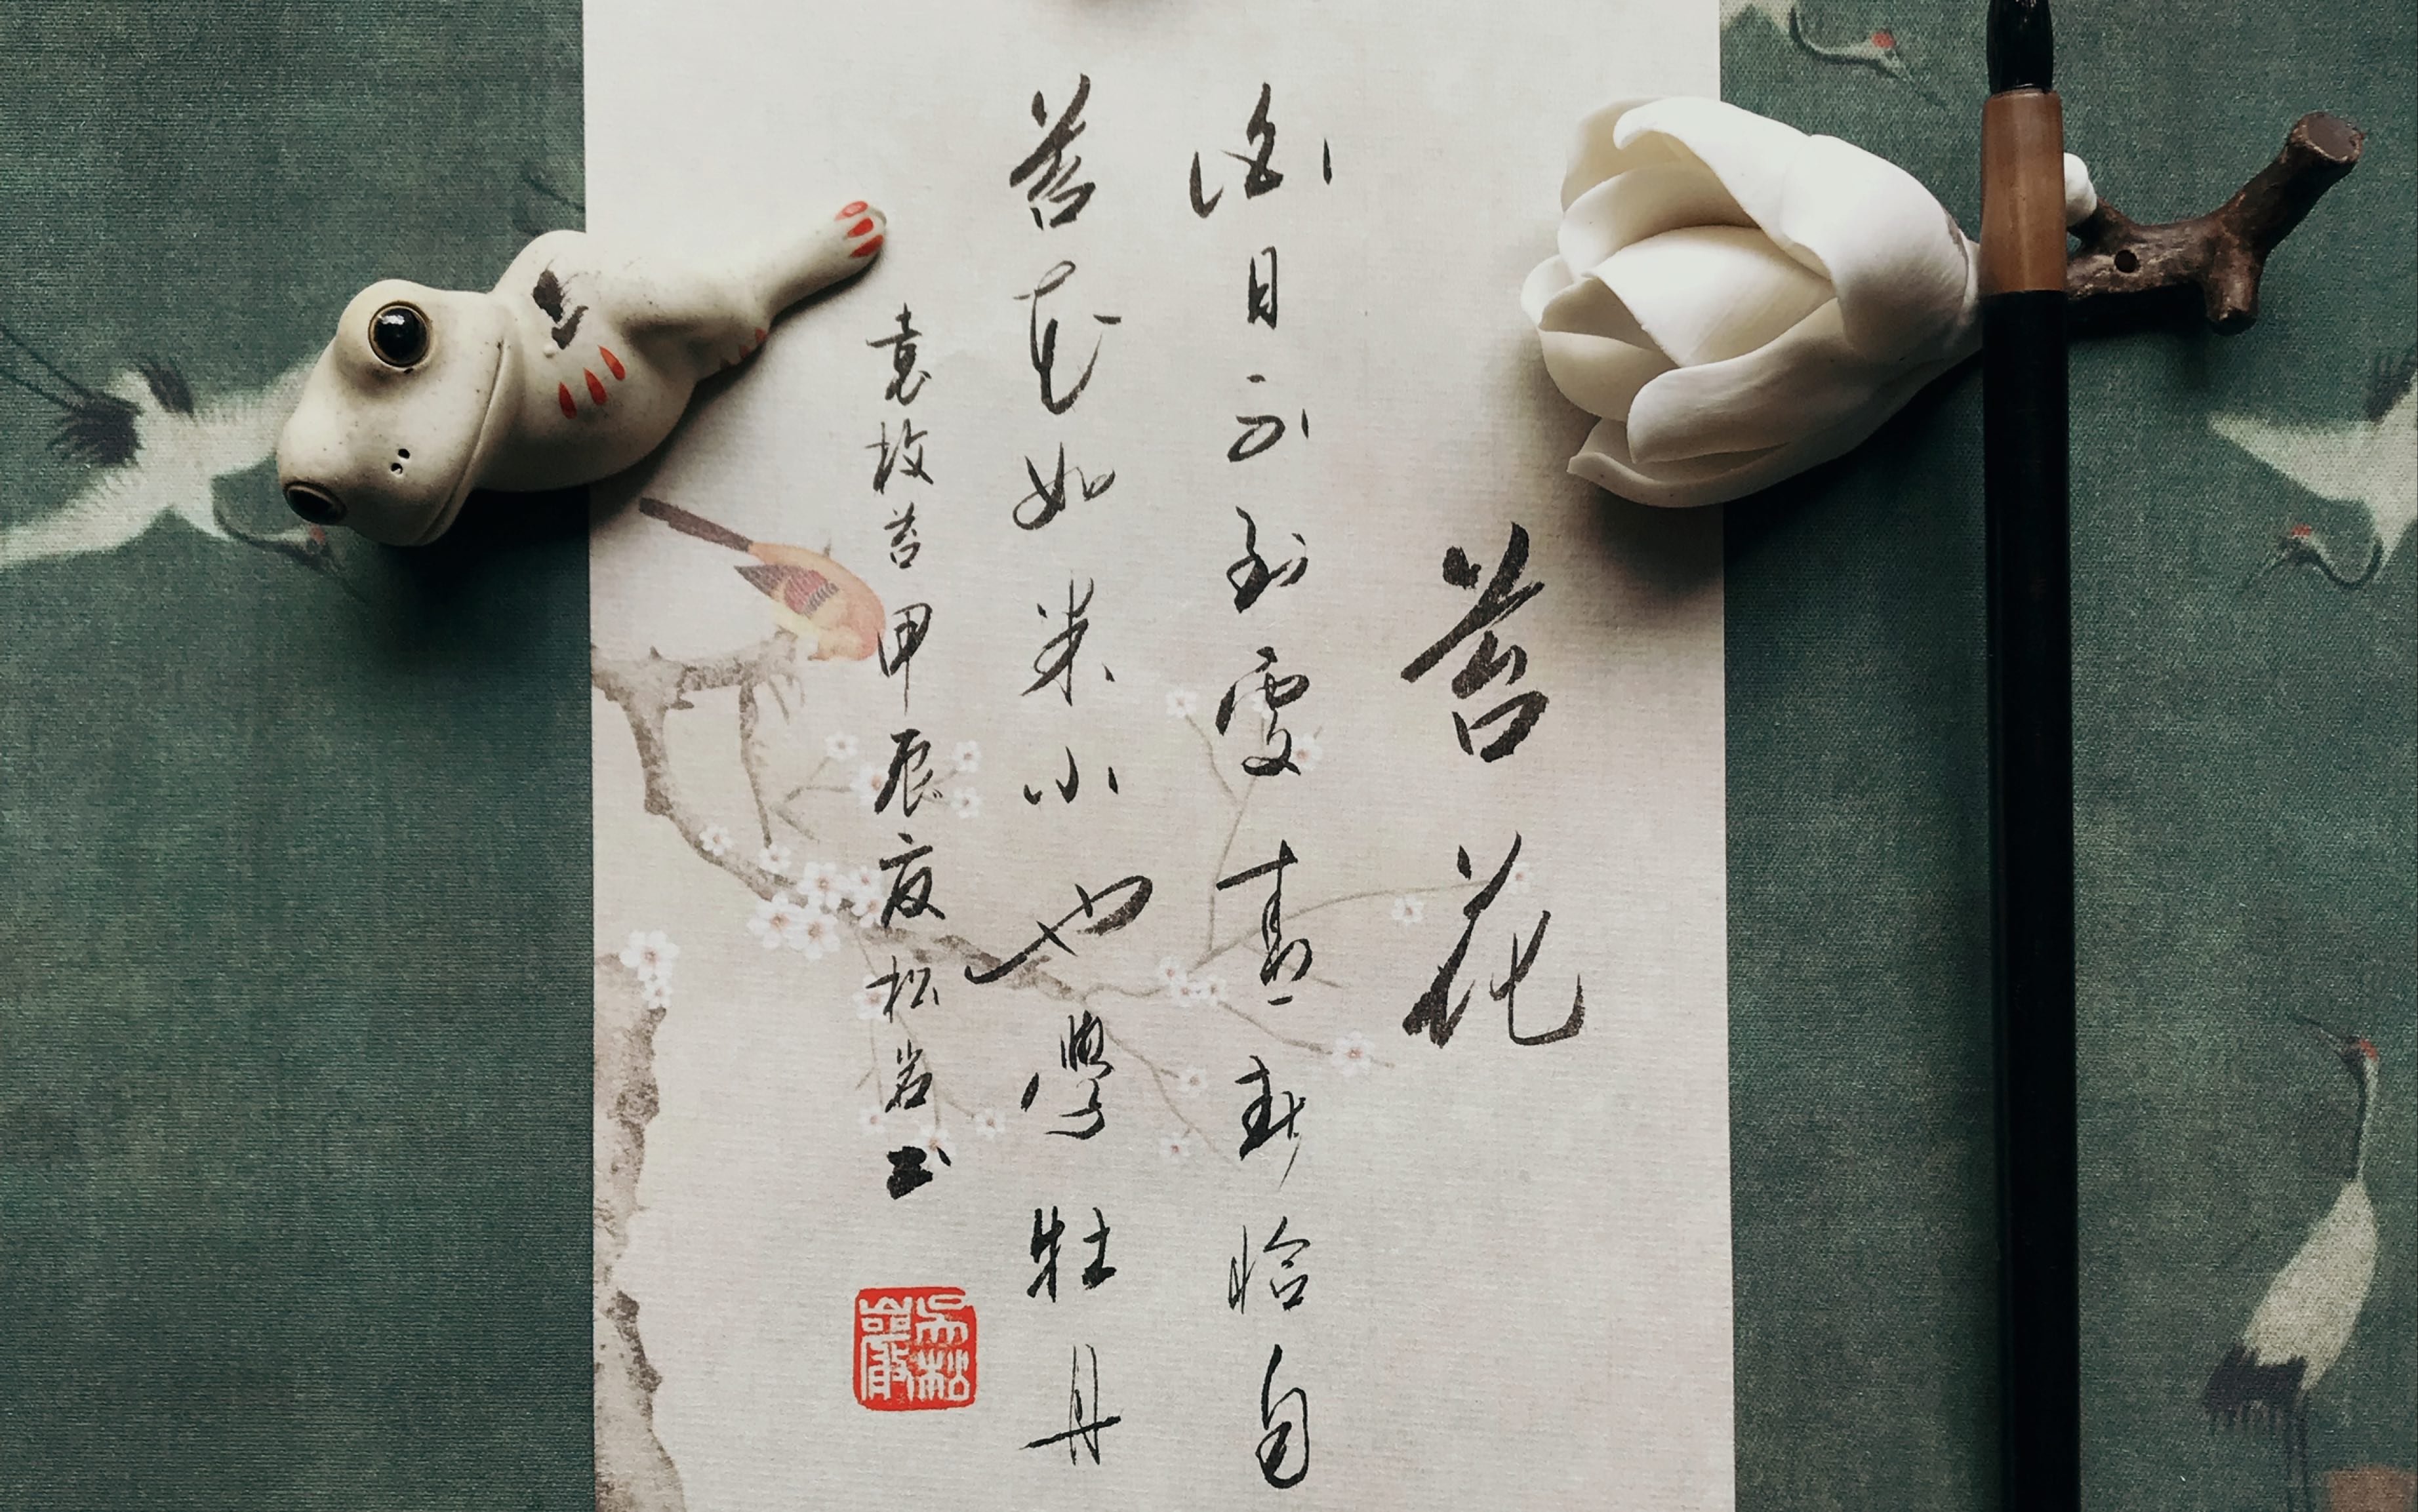 苔花
日不到處青春恰自
苔花如米小也學牡丹
袁枚苔甲辰夏松岩书
吳松巖